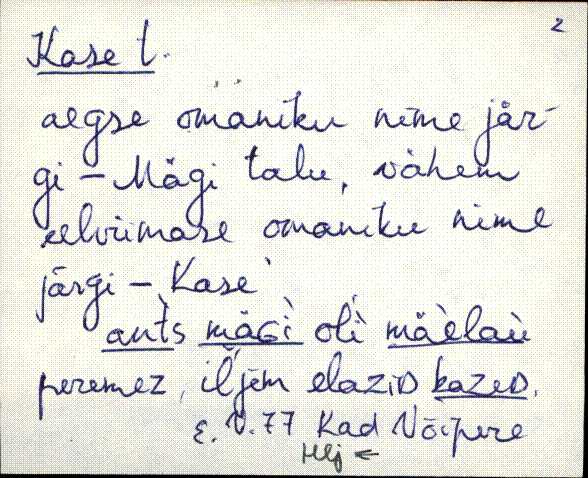 2
Kase t.
aegse omaniku nime jär-
gi – Mägi talu, vähem
eelviimase omaniku nime
järgi – Kase
ànt̀s mäɢì olì mäèlaù
peremez, iljem elaziᴅ kazeᴅ.
E. V. 77 Kad Võipere
Hlj ←